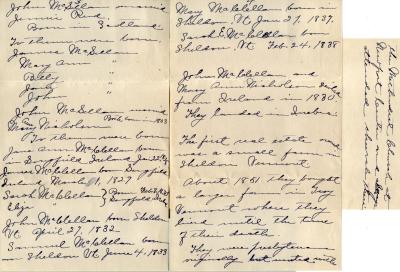 John McLellan married
Jennie Rae.
Born Scotland
To them were born,
James McLellan
Mary Ann "
Billy "
Jane "
John "
John McLellan married
Mary Nicholson Both born in 1803
To them were born
Jane Ann McClellan born
in Ireland
James McClellan born
Ireland March 1, 1827
Sarah McClellan Born
Eliza
John McClellan born Sheldon
Vt. April 27, 1832
Samuel McClellan born
in Sheldon Vt June 4, 1833
Mary McClellan born in
Sheldon, Vt Jan 27, 1837.
Sarah E. McClellan born
Sheldon, Vt Feb. 24, 1838
John McClellan and
Mary Ann Nicholson
from Ireland in 1830.
They landed in Quebec.
The first real estate owned
was a small farm in
Sheldon Vermont.
About 1861 they bought
a larger farm in Troy
Vermont where they
lived until the time
of their death.
They were presbyterian
originally but united with
the Methodist Church at
North Troy
attended a church there